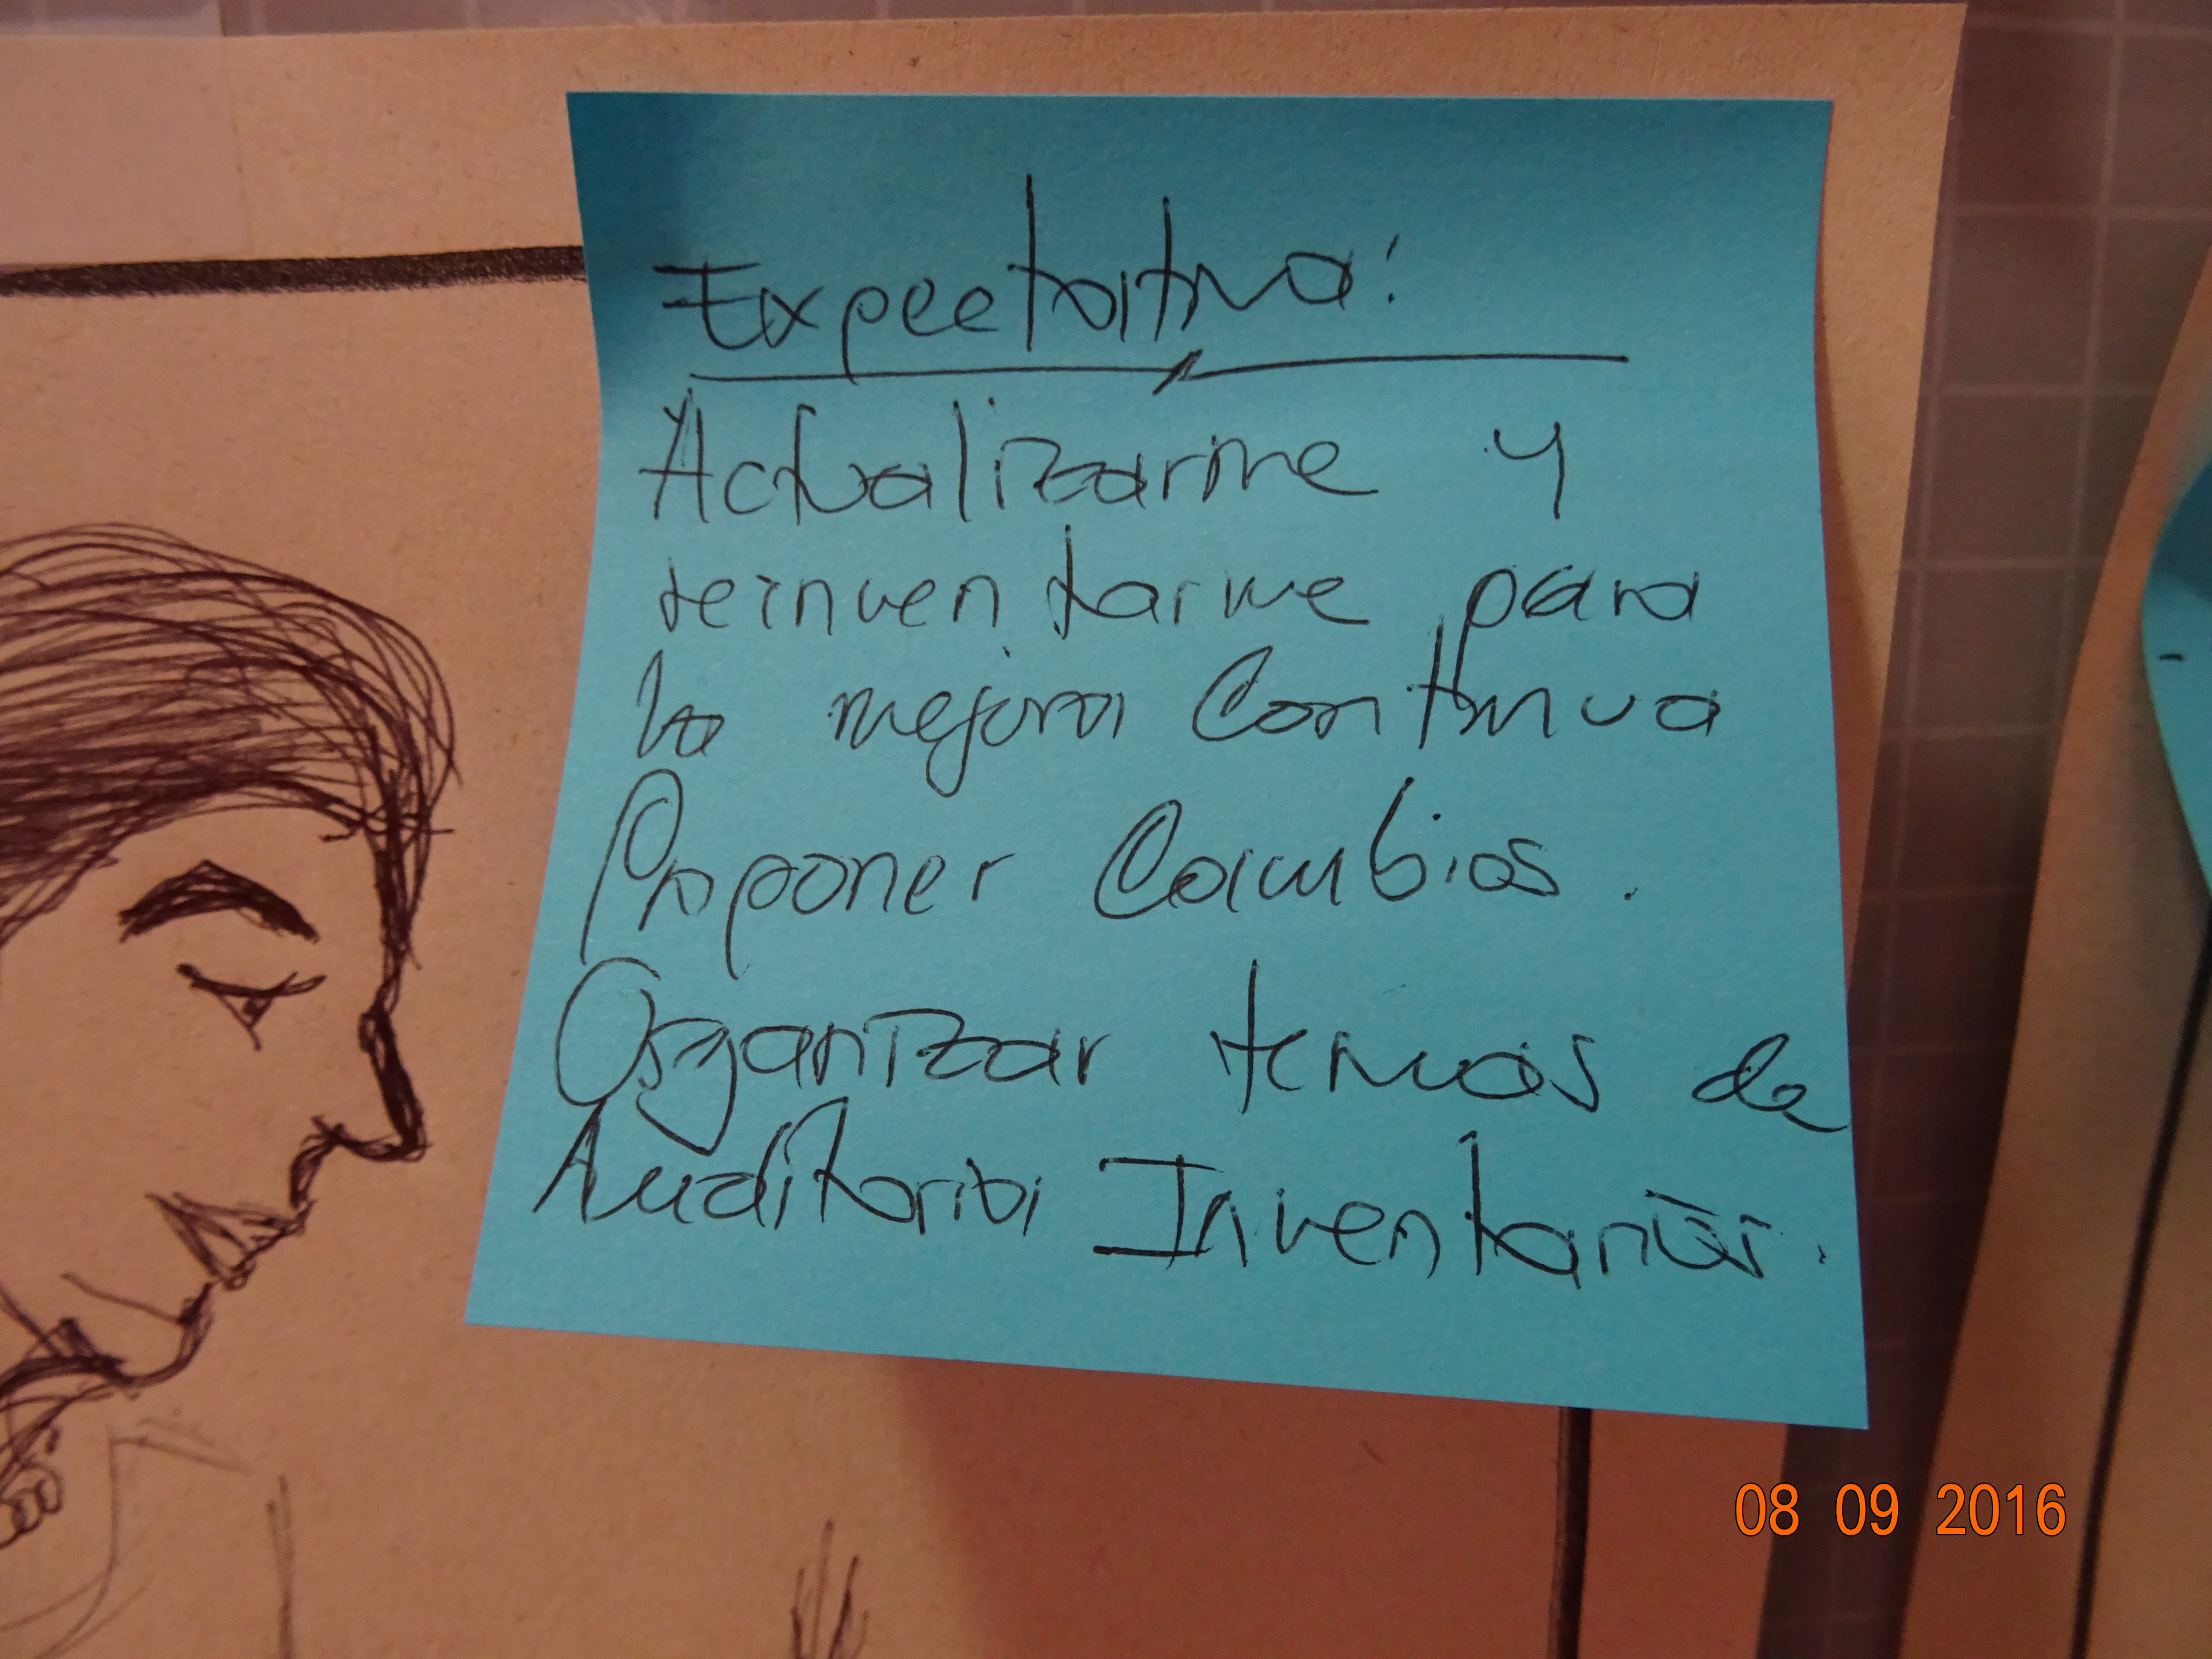 Expectativa:
Actualizarme y
reinventarme para
la mejora Continua
Proponer Cambios.
Organizar temas de
Auditoria Inventarios.
08 09 2016